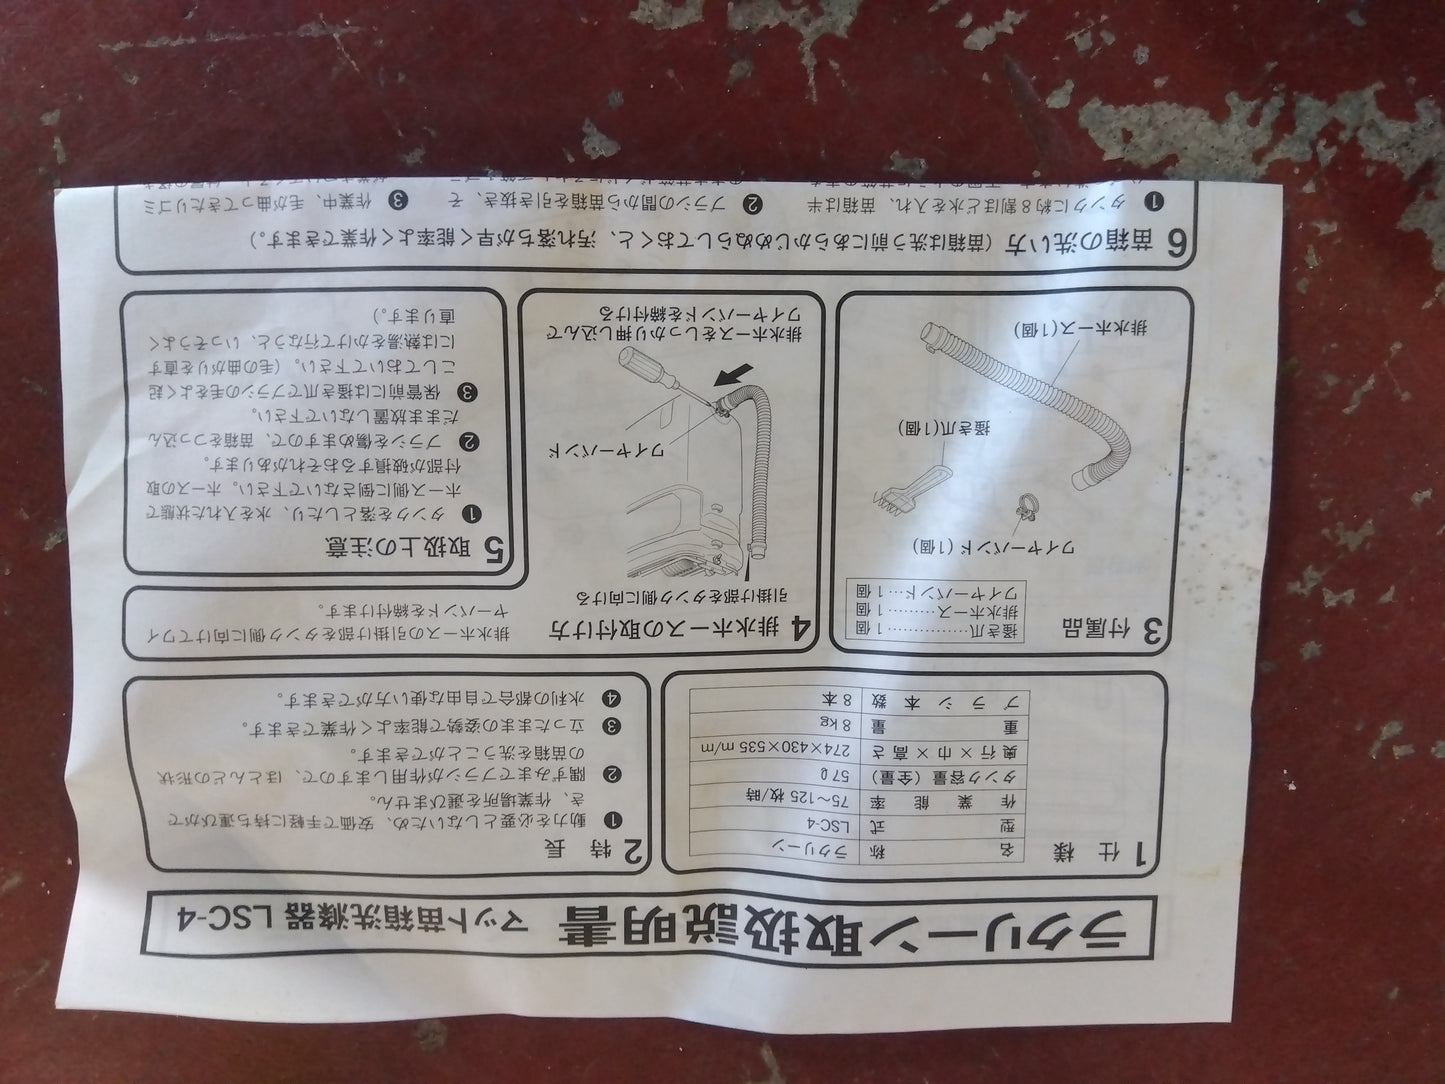 ラクリーン取扱説明書 マット苗箱洗滌器 LSC-4
1 仕様
名称 ラクリーン
型式 LSC-4
作業能率 75〜125枚/時
タンク容量(全量) 57ℓ
奥行×巾×高さ 274×430×535 m/m
重量 8kg
ブラシ本数 8本
2 特長
❶ 動力を必要としないため、安価で手軽に持ち運びがで
き、作業場所を選びません。
❷ 隅ずみまでブラシが作用しますので、ほとんどの形状
の苗箱を洗うことができます。
❸ 立ったままの姿勢で能率よく作業できます。
❹ 水利の都合で自由な使い方ができます。
3 付属品
掻き爪……………1個
排水ホース………1個
ワイヤーバンド…1個
ワイヤーバンド(1個)
掻き爪(1個)
排水ホース(1個)
4 排水ホースの取付け方
排水ホースの引掛け部をタンク側に向けてワイ
ヤーバンドを締付けます。
引掛け部をタンク側に向ける
ワイヤーバンド
排水ホースをしっかり押し込んで
ワイヤーバンドを締付ける
5 取扱上の注意
❶ タンクを落としたり、水を入れた状態で
ホース側に倒さないで下さい。ホースの取
付部が破損するおそれがあります。
❷ ブラシを傷めますので、苗箱をつっ込ん
だまま放置しないで下さい。
❸ 保管前には掻き爪でブラシの毛をよく起
こしておいて下さい。(毛の曲がりを直す
には熱湯をかけて行なうと、いっそうよく
直ります。)
6 苗箱の洗い方(苗箱は洗う前にあらかじめぬらしておくと、汚れ落ちが早く能率よく作業できます。)
❶ タンクに約8割ほど水を入れ、苗箱は半
❷ ブラシの間から苗箱を引き抜き、そ
❸ 作業中、毛が曲ってきたりゴミ